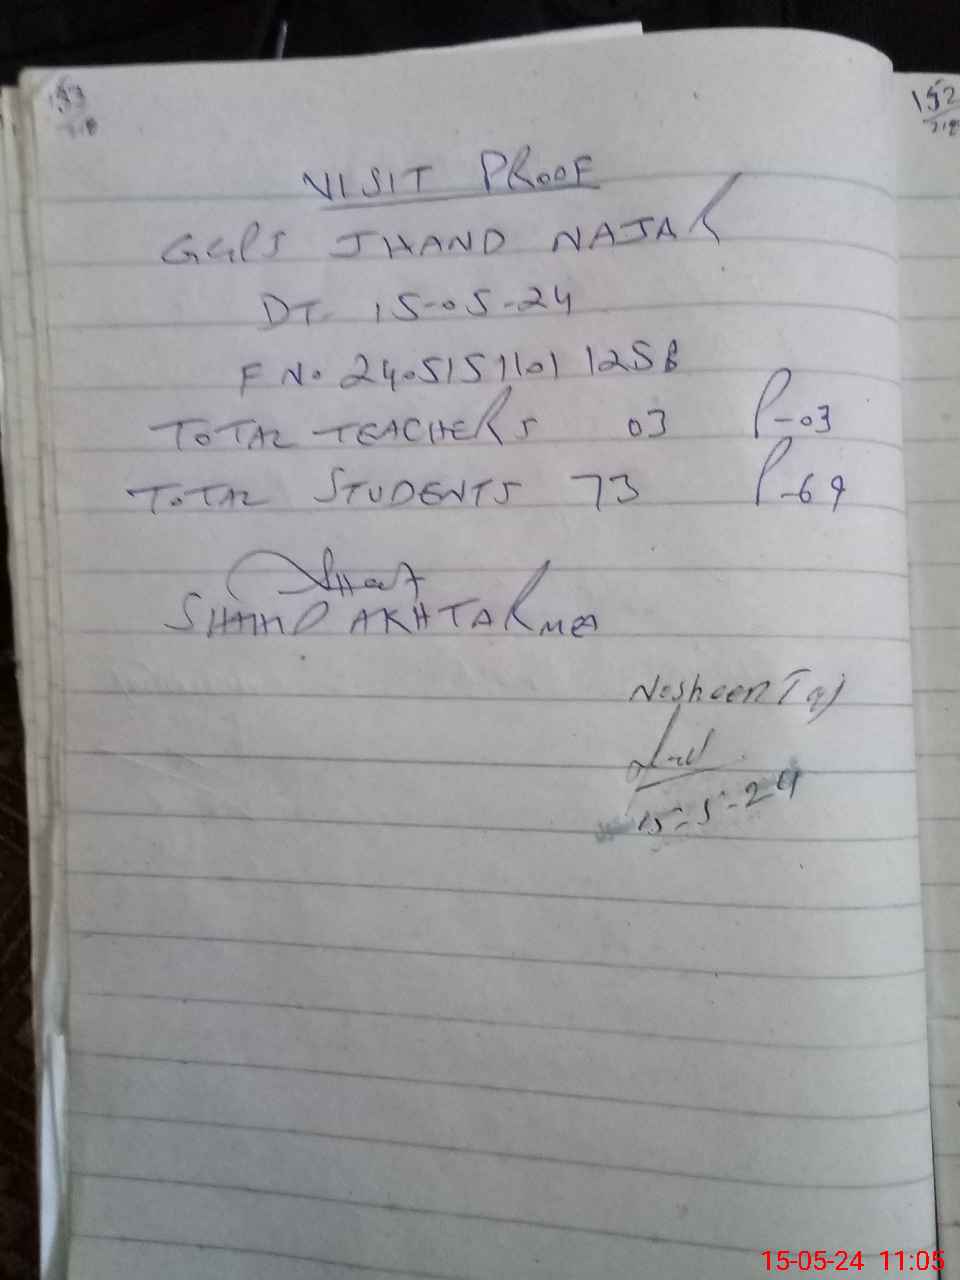 153
218
152
218
VISIT PROOF
GGPS JHAND NAJAR
DT. 15-05-24
F NO. 24051511011258
TOTAL TEACHERS 03 P-03
TOTAL STUDENTS 73 P-69
AKHTAR MEA
Nosheen Taj
15-5-24
15-05-24 11:05